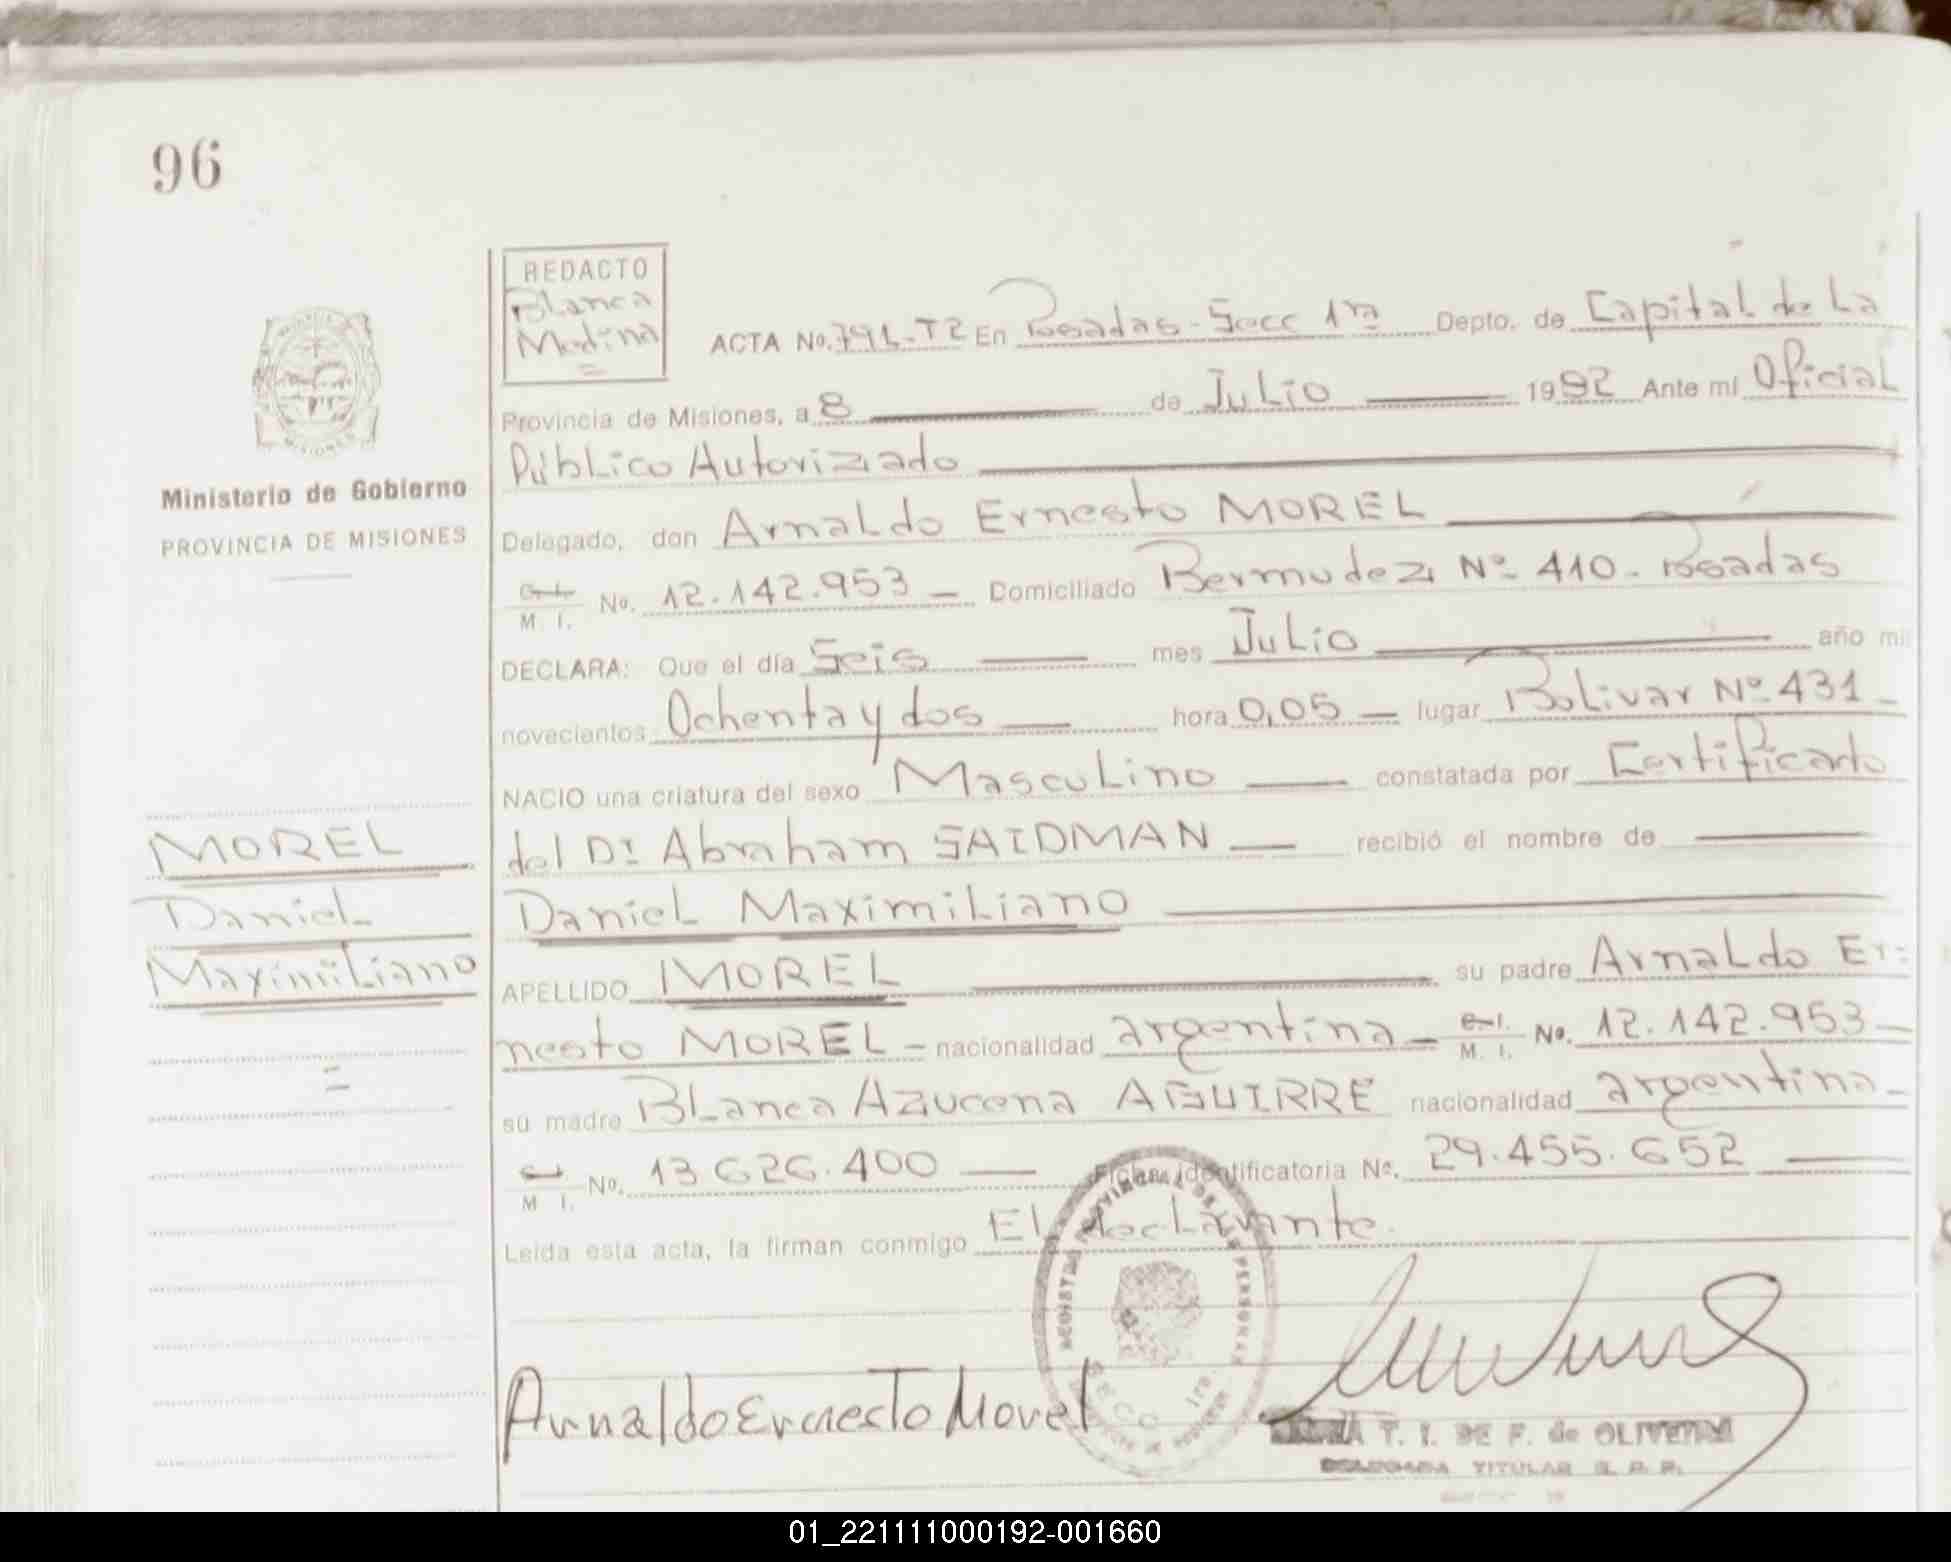 96
REDACTO
Blanca
Medina
MISIONES
Ministerio de Gobierno
PROVINCIA DE MISIONES
ACTA No. 791-T2 En Posadas-Secc 1ra Depto. de Capital de La
Provincia de Misiones, a 8 de Julio 1982 Ante mí Oficial
Público Autorizado
Delegado, don Arnaldo Ernesto MOREL
M. I. No. 12.142.953 - Domiciliado Bermudez Nº 410 - Posadas
DECLARA: Que el día Seis mes Julio año mil
novecientos Ochenta y dos hora 0,05 - lugar Bolivar Nº 431 -
NACIO una criatura del sexo Masculino constatada por Certificado
del Dr Abraham SAIDMAN recibió el nombre de
Daniel Maximiliano
APELLIDO MOREL su padre Arnaldo Er=
nesto MOREL - nacionalidad argentina - M. I. No. 12.142.953 -
su madre Blanca Azucena AGUIRRE nacionalidad argentina -
M I. No. 13 626.400 Ficha identificatoria No. 29.455.652
Leída esta acta, la firman conmigo El declarante.
MOREL
Daniel
Maximiliano
Arnaldo Ernesto Morel
T. I. DE F. de OLIVEIRA
DELEGADA TITULAR R. P. P.
01_221111000192-001660